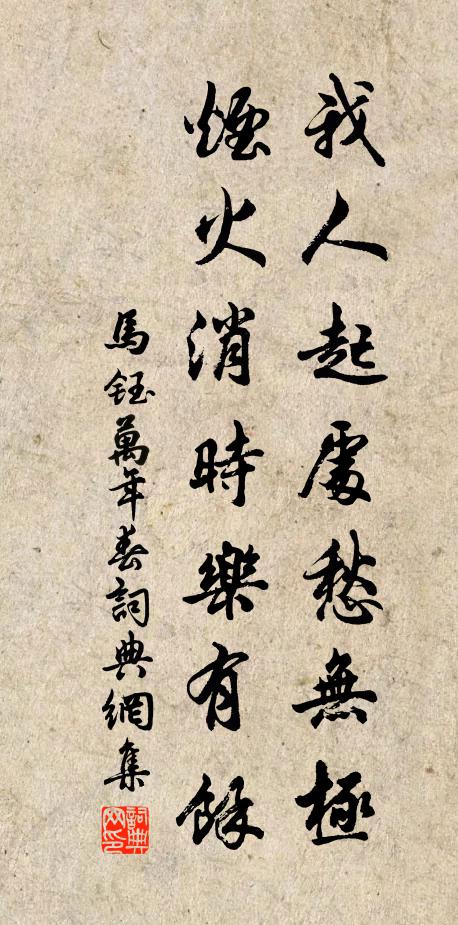 我人起處愁無極
煙火消時樂有餘
馬鈺萬年春詞典網集
詞典網印